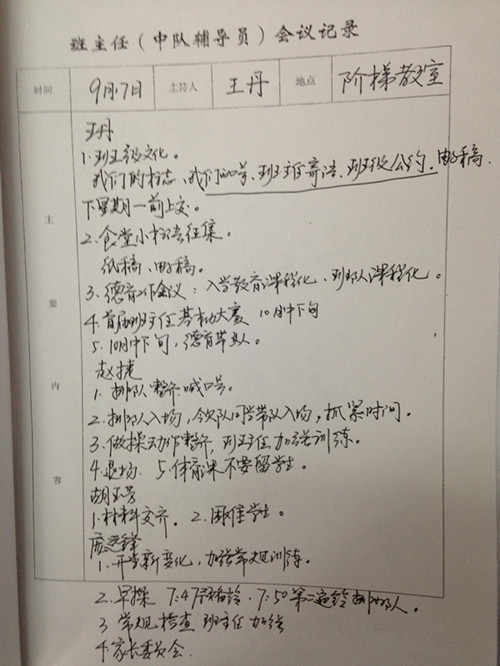 班主任（中队辅导员）会议记录
时间 9月7日 主持人 王丹 地点 阶梯教室
主要内容
王丹
1.班级文化。
我们的标志、我们的口号、班主任寄语、班级公约。电子稿
下星期一前上交。
2.食堂小标语征集。
纸稿、电子稿。
3.德育工作会议：入学教育课程化、班队课程化。
4.首届班主任基本功大赛 10月中下旬
5.10月中下旬，德育
赵捷
1.排队整齐喊口号。
2.排队入场，令次队同学带队入场，抓紧时间。
3.做操动作整齐，班主任加强训练。
4.退场. 5.体育课不要留学生。
胡玉芳
1.材料交齐. 2.困难学生。
1.开学新变化，加强常规训练。
2.早操 7:47预备铃，7:50第二遍铃排好队。
3 常规检查 班主任加强
4 家长委员会.